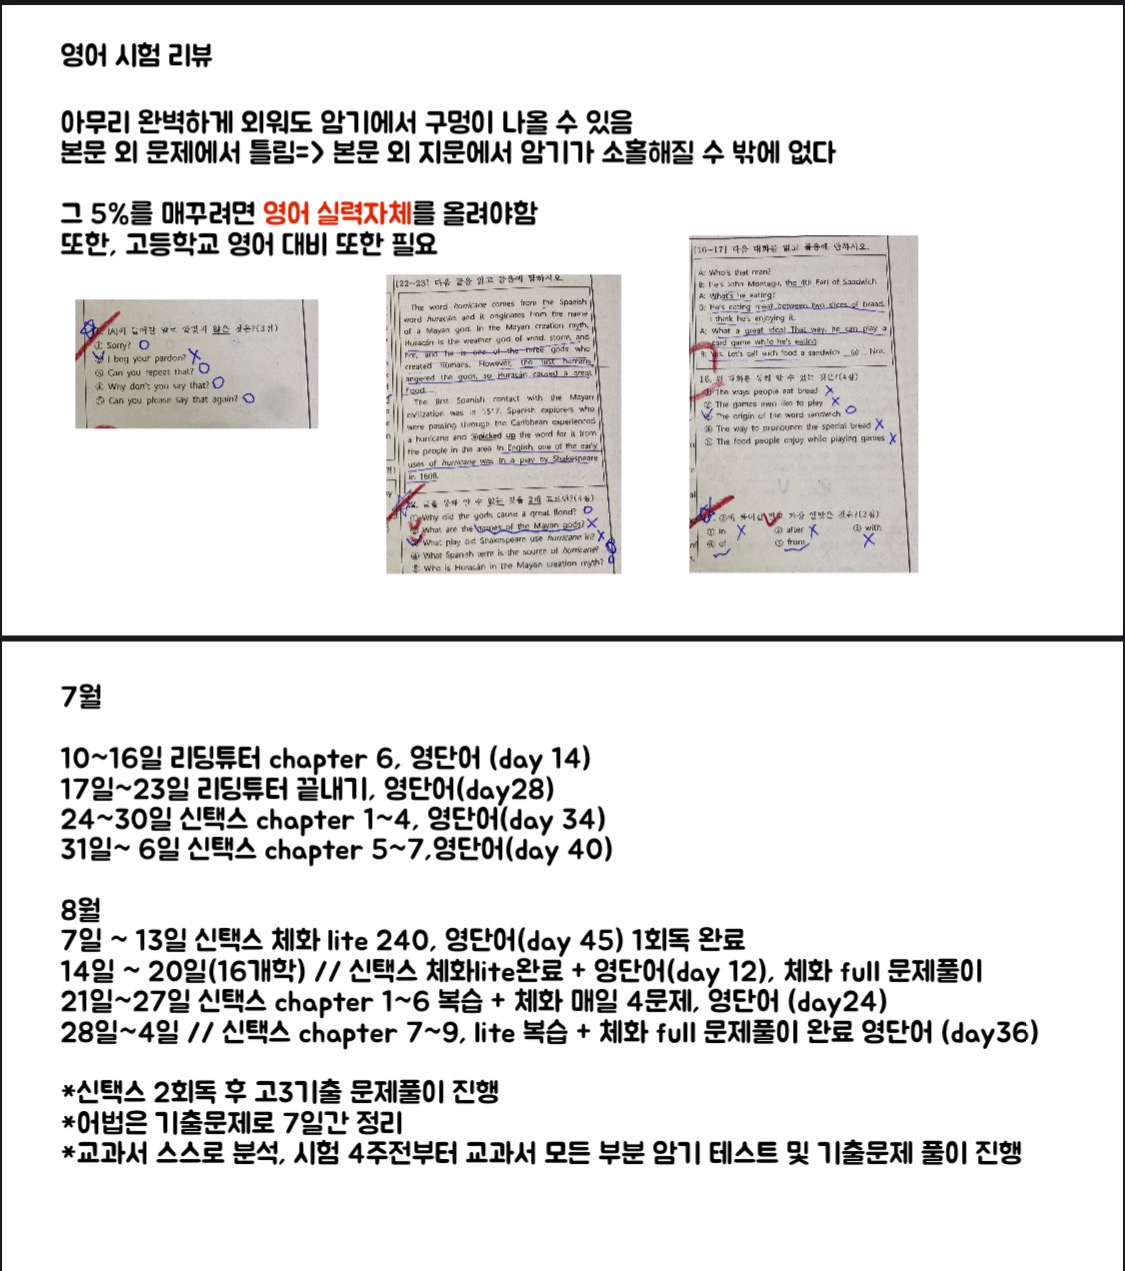 영어 시험 리뷰
아무리 완벽하게 외워도 암기에서 구멍이 나올 수 있음
본문 외 문제에서 틀림=> 본문 외 지문에서 암기가 소홀해질 수 밖에 없다
그 5%를 매꾸려면 영어 실력자체를 올려야함
또한, 고등학교 영어 대비 또한 필요
않은 것은?(3점)
① Sorry?
I beg your pardon?
③ Can you repeat that?
④ Why don't you say that?
⑤ Can you please say that again?
[22~23] 다음 글을 읽고 물음에 답하시오.
The word hurricane comes from the Spanish
word huracán and it originates from the name
of a Mayan god. In the Mayan creation myth,
Huracán is the weather god of wind, storm, and
fire, and he is one of the three gods who
created humans. However, the first humans
angered the gods, so Huracán caused a great
flood.
The first Spanish contact with the Mayan
civilization was in 1517. Spanish explorers who
were passing through the Caribbean experienced
a hurricane and picked up the word for it from
the people in the area. In English, one of the early
uses of hurricane was in a play by Shakespeare
in 1608.
Why did the gods cause a great flood?
What are the names of the Mayan gods?
What play did Shakespeare use hurricane in?
④ What Spanish term is the source of hurricane?
Who is Huracán in the Mayan creation myth?
[16~17] 다음 대화를 읽고 물음에 답하시오.
A: Who's that man?
B: He's John Montagu, the 4th Earl of Sandwich.
A: What's he eating?
B: He's eating meat between two slices of bread.
I think he's enjoying it.
A: What a great idea! That way, he can play a
card game while he's eating.
B: Yes. Let's call such food a sandwich him.
16. 위 대화를 통해 알 수 있는 것은?(4점)
① The ways people eat bread
② The games men like to play
The origin of the word sandwich
④ The way to pronounce the special bread
⑤ The food people enjoy while playing games
가장 알맞은 것은?(3점)
① in ② after ③ with
④ of ⑤ from
7월
10~16일 리딩튜터 chapter 6, 영단어 (day 14)
17일~23일 리딩튜터 끝내기, 영단어(day28)
24~30일 신택스 chapter 1~4, 영단어(day 34)
31일~ 6일 신택스 chapter 5~7,영단어(day 40)
8월
7일 ~ 13일 신택스 체화 lite 240, 영단어(day 45) 1회독 완료
14일 ~ 20일(16개학) // 신택스 체화lite완료 + 영단어(day 12), 체화 full 문제풀이
21일~27일 신택스 chapter 1~6 복습 + 체화 매일 4문제, 영단어 (day24)
28일~4일 // 신택스 chapter 7~9, lite 복습 + 체화 full 문제풀이 완료 영단어 (day36)
*신택스 2회독 후 고3기출 문제풀이 진행
*어법은 기출문제로 7일간 정리
*교과서 스스로 분석, 시험 4주전부터 교과서 모든 부분 암기 테스트 및 기출문제 풀이 진행